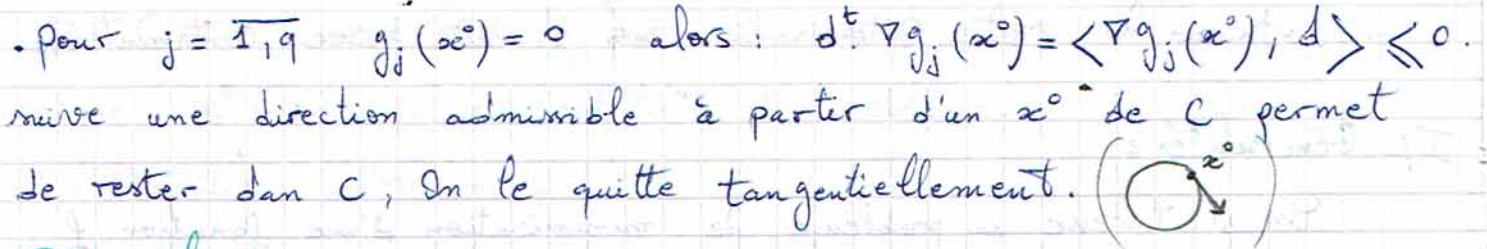 . Pour j = \overline{1,q} g_j(x°) = 0 alors : d^t. ∇g_j(x°) = <∇g_j(x°), d> ≤ 0.
suive une direction admissible à partir d'un x° de C permet
de rester dan C, On le quitte tangentiellement. ( x° )